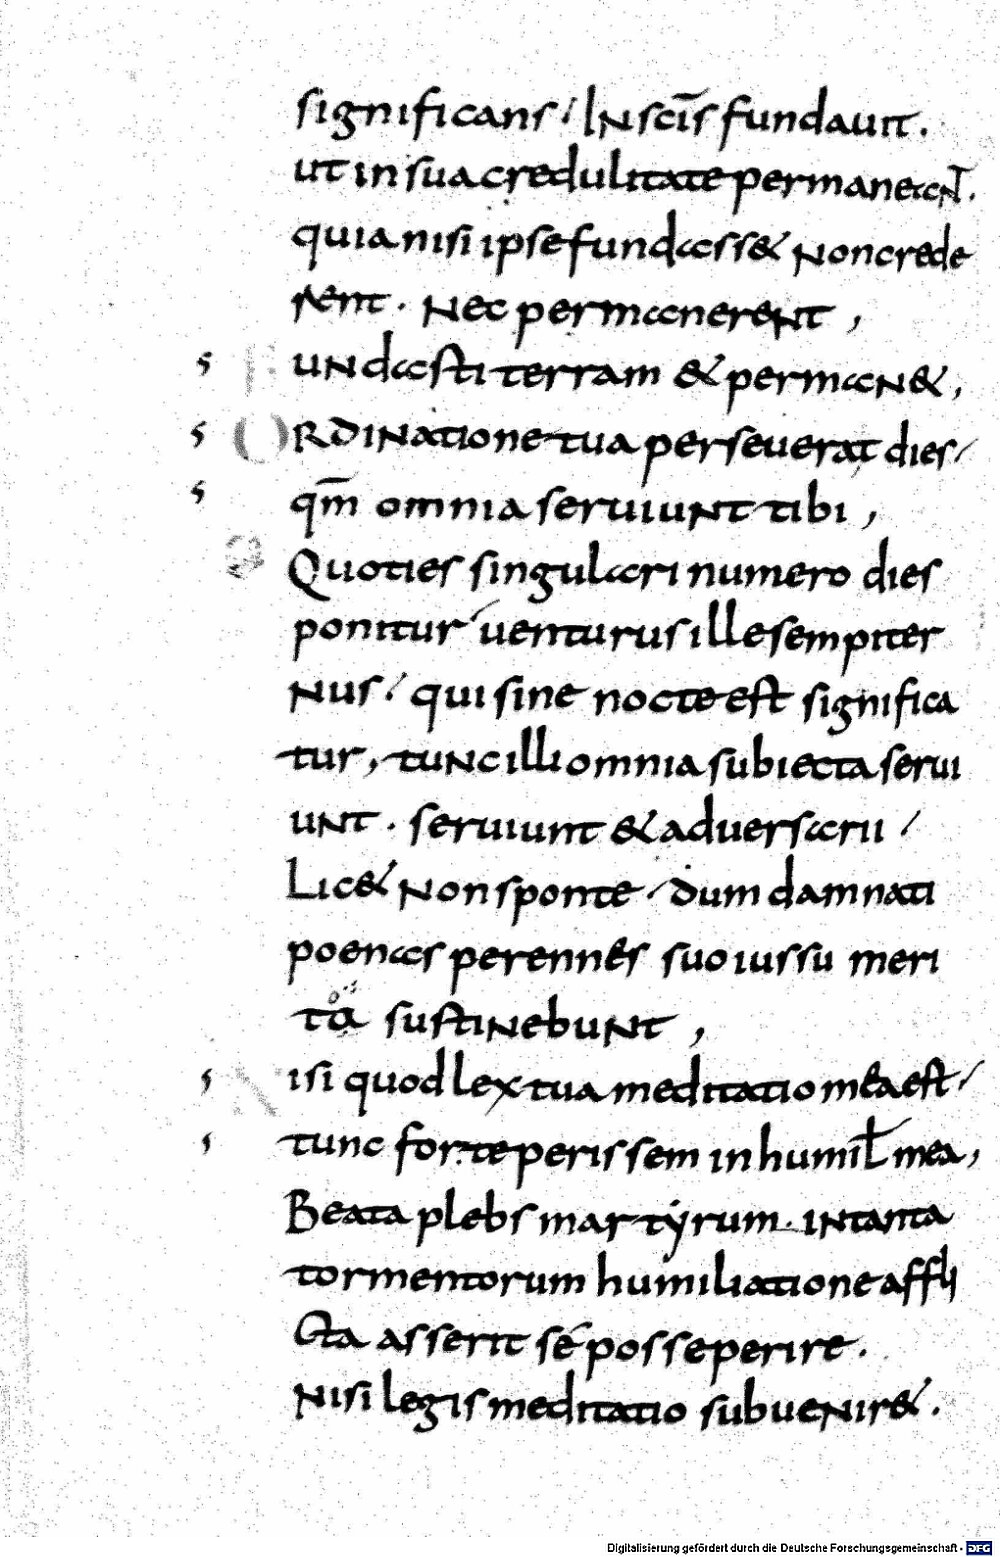 significans / IN sc̄is fundauit .
ut in sua credulitate permaneaNT̄ .
quia nisi ipse fundass& Noncrede
rent . Nec permanereNt ,
s F UNdasti terram & permaN& ,
s O RDINatione tua perseuerat dies /
s qm̄ omnia seruiuNt tibi ,
Quoties singulari numero dies
ponitur / uenturus ille sempiter
Nus / qui sine nocte est significa
tur , tuNc illi omnia subiecta serui
uNt . seruiunt & aduersarii /
Lic& Non sponte / dum damnati
poenas perennes suo iussu meri
to sustiNebuNt ,
s N isi quod lex tua meditatio mea est /
s tunc forte perissem in humiL̄ mea ,
Beata plebs martẏrum . iN tanta
tormentorum humiliatione affli
cta asserit sé posse perire .
Nisi legis meditatio subueNir& .
Digitalisierung gefördert durch die Deutsche Forschungsgemeinschaft - DFG